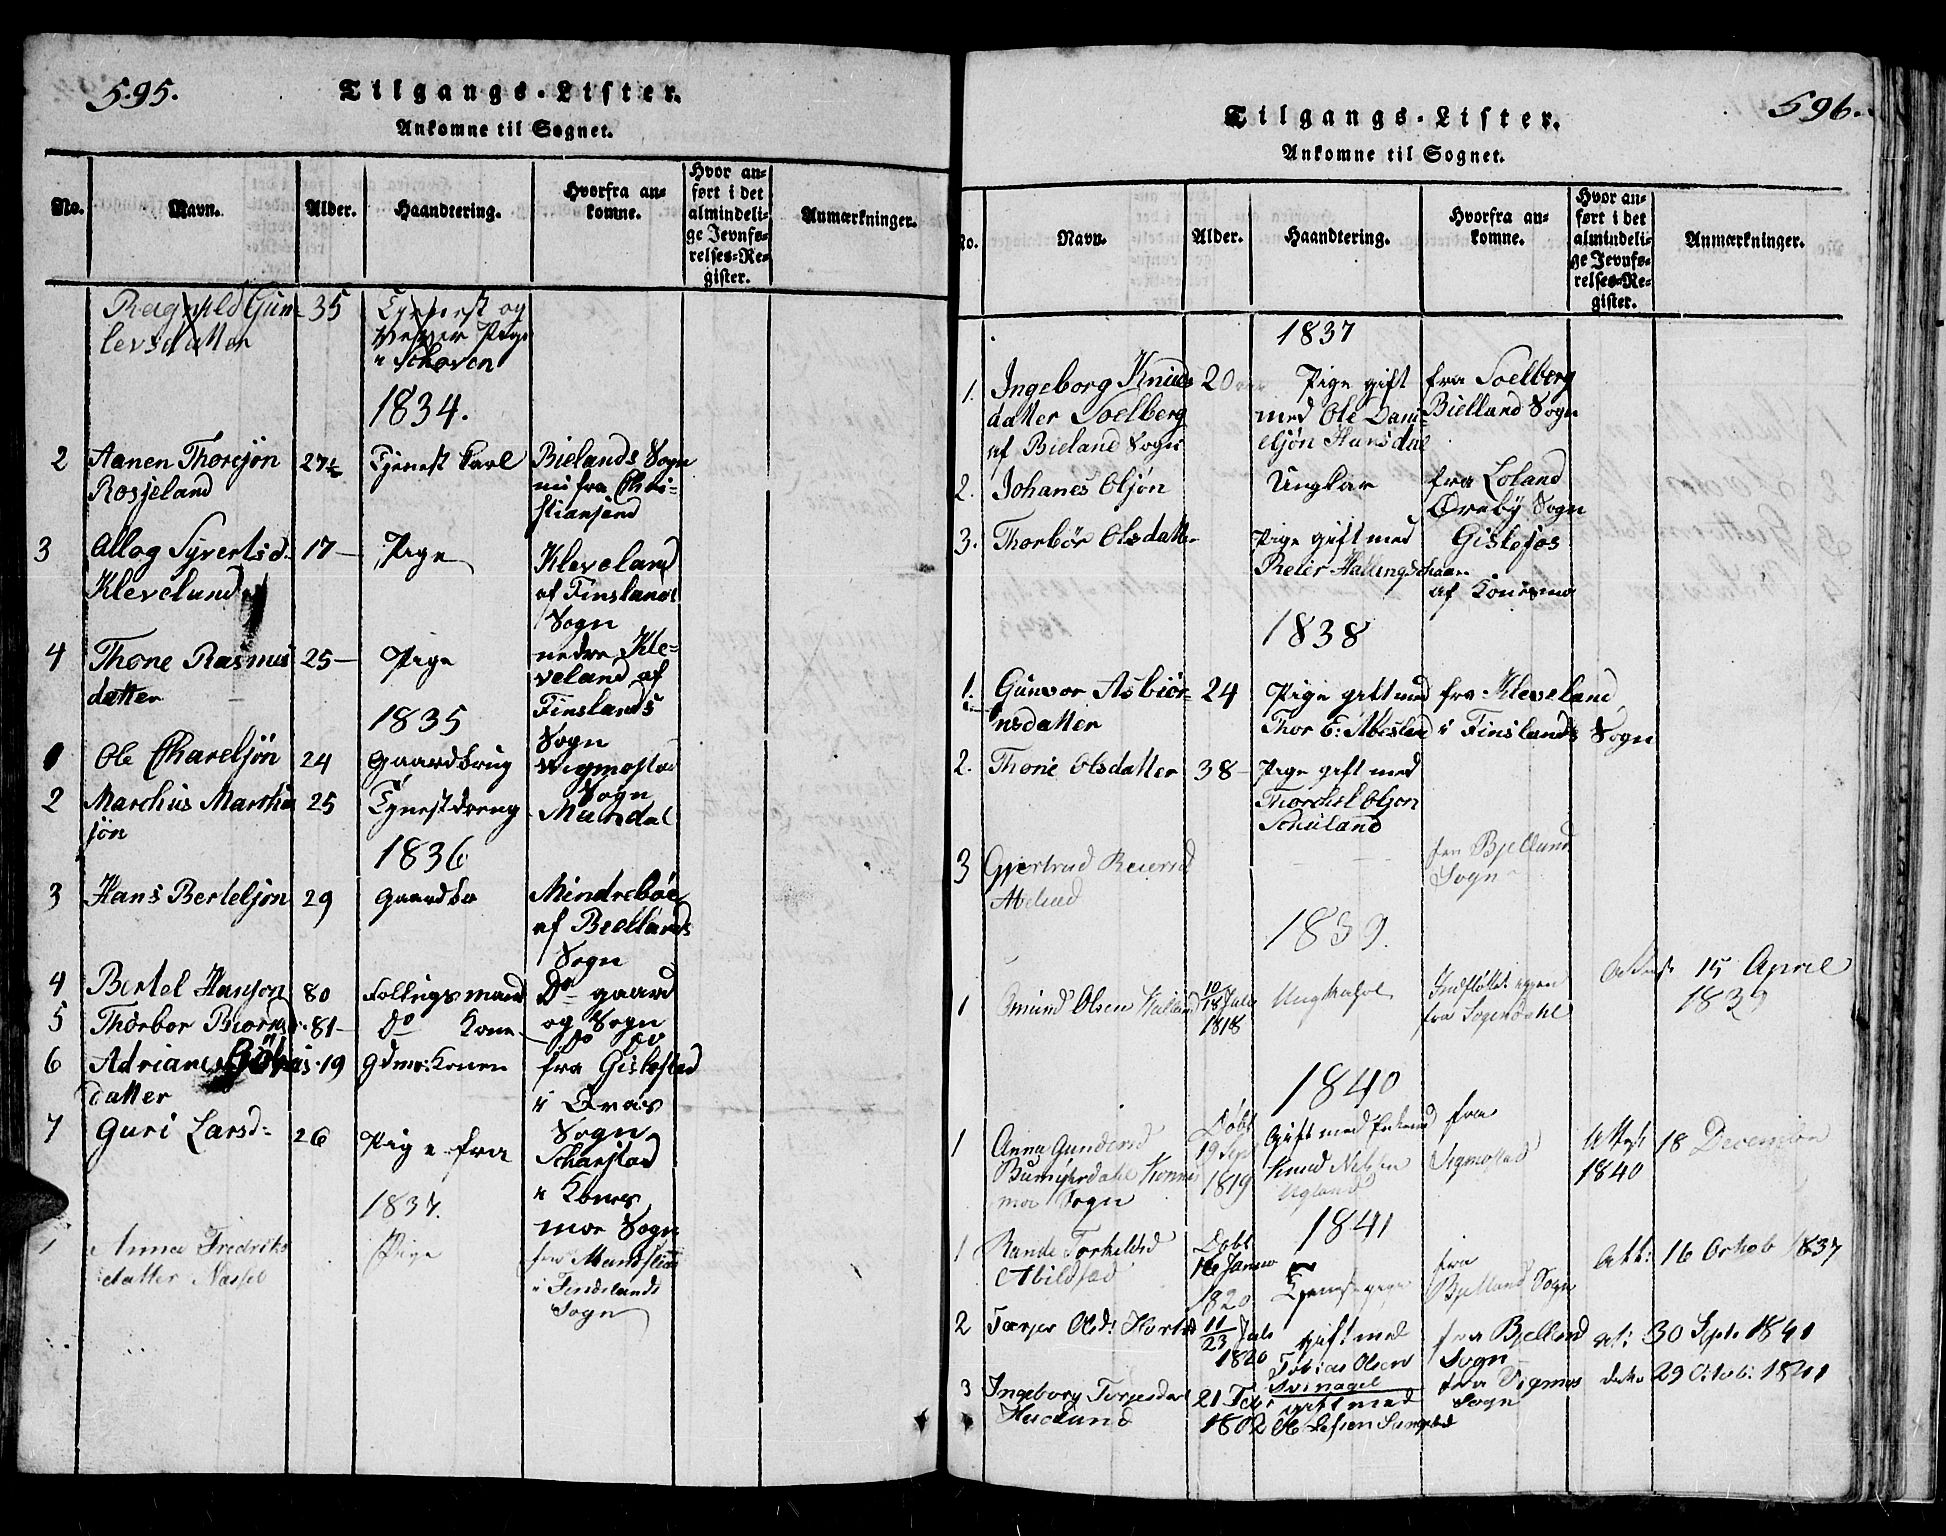 595.
Tilgangs-Lister.
Ankomne til Sognet.
No.
Navn.
Alder.
Haandtering.
Hvorfra an-
komne.
Hvor an-
ført i det
almindeli-
ge Jevnfø-
relses-Re-
gister.
Anmærkninger.
Ragnild Gun-
levsdatter
35
Tjenest og
Pige
i Schoven
1834.
2
Aanen Thorsjøn
Rosseland
27½
Tjenest Karl
Bielands Sogn
nu fra Chri-
stiansend
3
Allog Syvertsd-
Kleveland
17-
Pige
Kleveland
af Finslands
Sogn
4
Thone Rasmus
datter
25-
Pige
nedre Kle-
veland af
Finslands
Sogn
1835
Ole Charelsjøn
24
Gaardbrug
Wigmostad
Sogn
2
Marchus Marchu
sjøn
25
Tjnestdreng
Mandal
1836
3
Hans Bertelsjøn
29
Gaardbr
Mindrebøe
af Biellands
Sogn
4
Bertel Hansøn
80
Follugsmand
Do gaard
og Sogn
5
Thorbor Biørns
81-
Do Kone
do do
6
Adriane
datter
19
Gdmr: Konen
fra Gislestad
i Øvas
Sogn
7
Guri Larsd-
26
Pige fra
Scharstad
i Konis
moe Sogn
1837.
1
Anna Fredriks
datter Nassel
Pige
fra
i Findslands
Sogn
596.
Tilgangs-Lister.
Ankomne til Sognet.
No.
Navn.
Alder.
Haandtering.
Hvorfra an-
komne.
Hvor an-
ført i det
almindeli-
ge Jevnfø-
relses-Re-
gister.
Anmærkninger.
1837
1.
Ingeborg Knuds
datter Soelberg
af Bieland Sogn
20
Pige gift
med Ole Dani-
elsjøn Hansdal
fra Soelberg
Bielland Sogn
2.
Johanes Olsjøn
Ungkar
fra Loland
Øvebÿ Sogn
3.
Thorbør Olsdatter
Pige gift med
Reier Hallingschaar
Gislefos
af Konismo
1838
1.
Gunvor Asbiør-
nsdatter
24
Pige gift med
Thor E: Abesland
fra Kleveland
i Finslands Sogn
2.
Thone Olsdatter
38-
Pige gift med
Thorchel Olsjøn
Schuland
3
Gjertrud Reiersd
fra Bjelland
Sogn
1839.
1
Omund Olsen
10/18 Juli
1818
Ungkarl
fra Sogendahl
Attest 15 April
1839
1840
1
Anna Gundersd
Sogn
Døbt
19 Sept
1819
Gift med Enkemd
Knud Nielsen
Ugland
fra
Vigmostad
Attest 18 December
1840
1841
1
Rande Torkildsd
Abildstad
Døbt
16 Januar
1820
Tjenestpige
fra
Bjelland Sogn
Att: 16 Octob 1837
2
Olsd:
11/23 Juli
1820
gift med
Tobias Olsen
Svinagel
fra Bjelland
Sogn
at: 30 Septr 1841
3
Ingeborg Torjesdat
21
1802
gift med
fra Vigmos
Sogn
dito 29 Octob: 1841